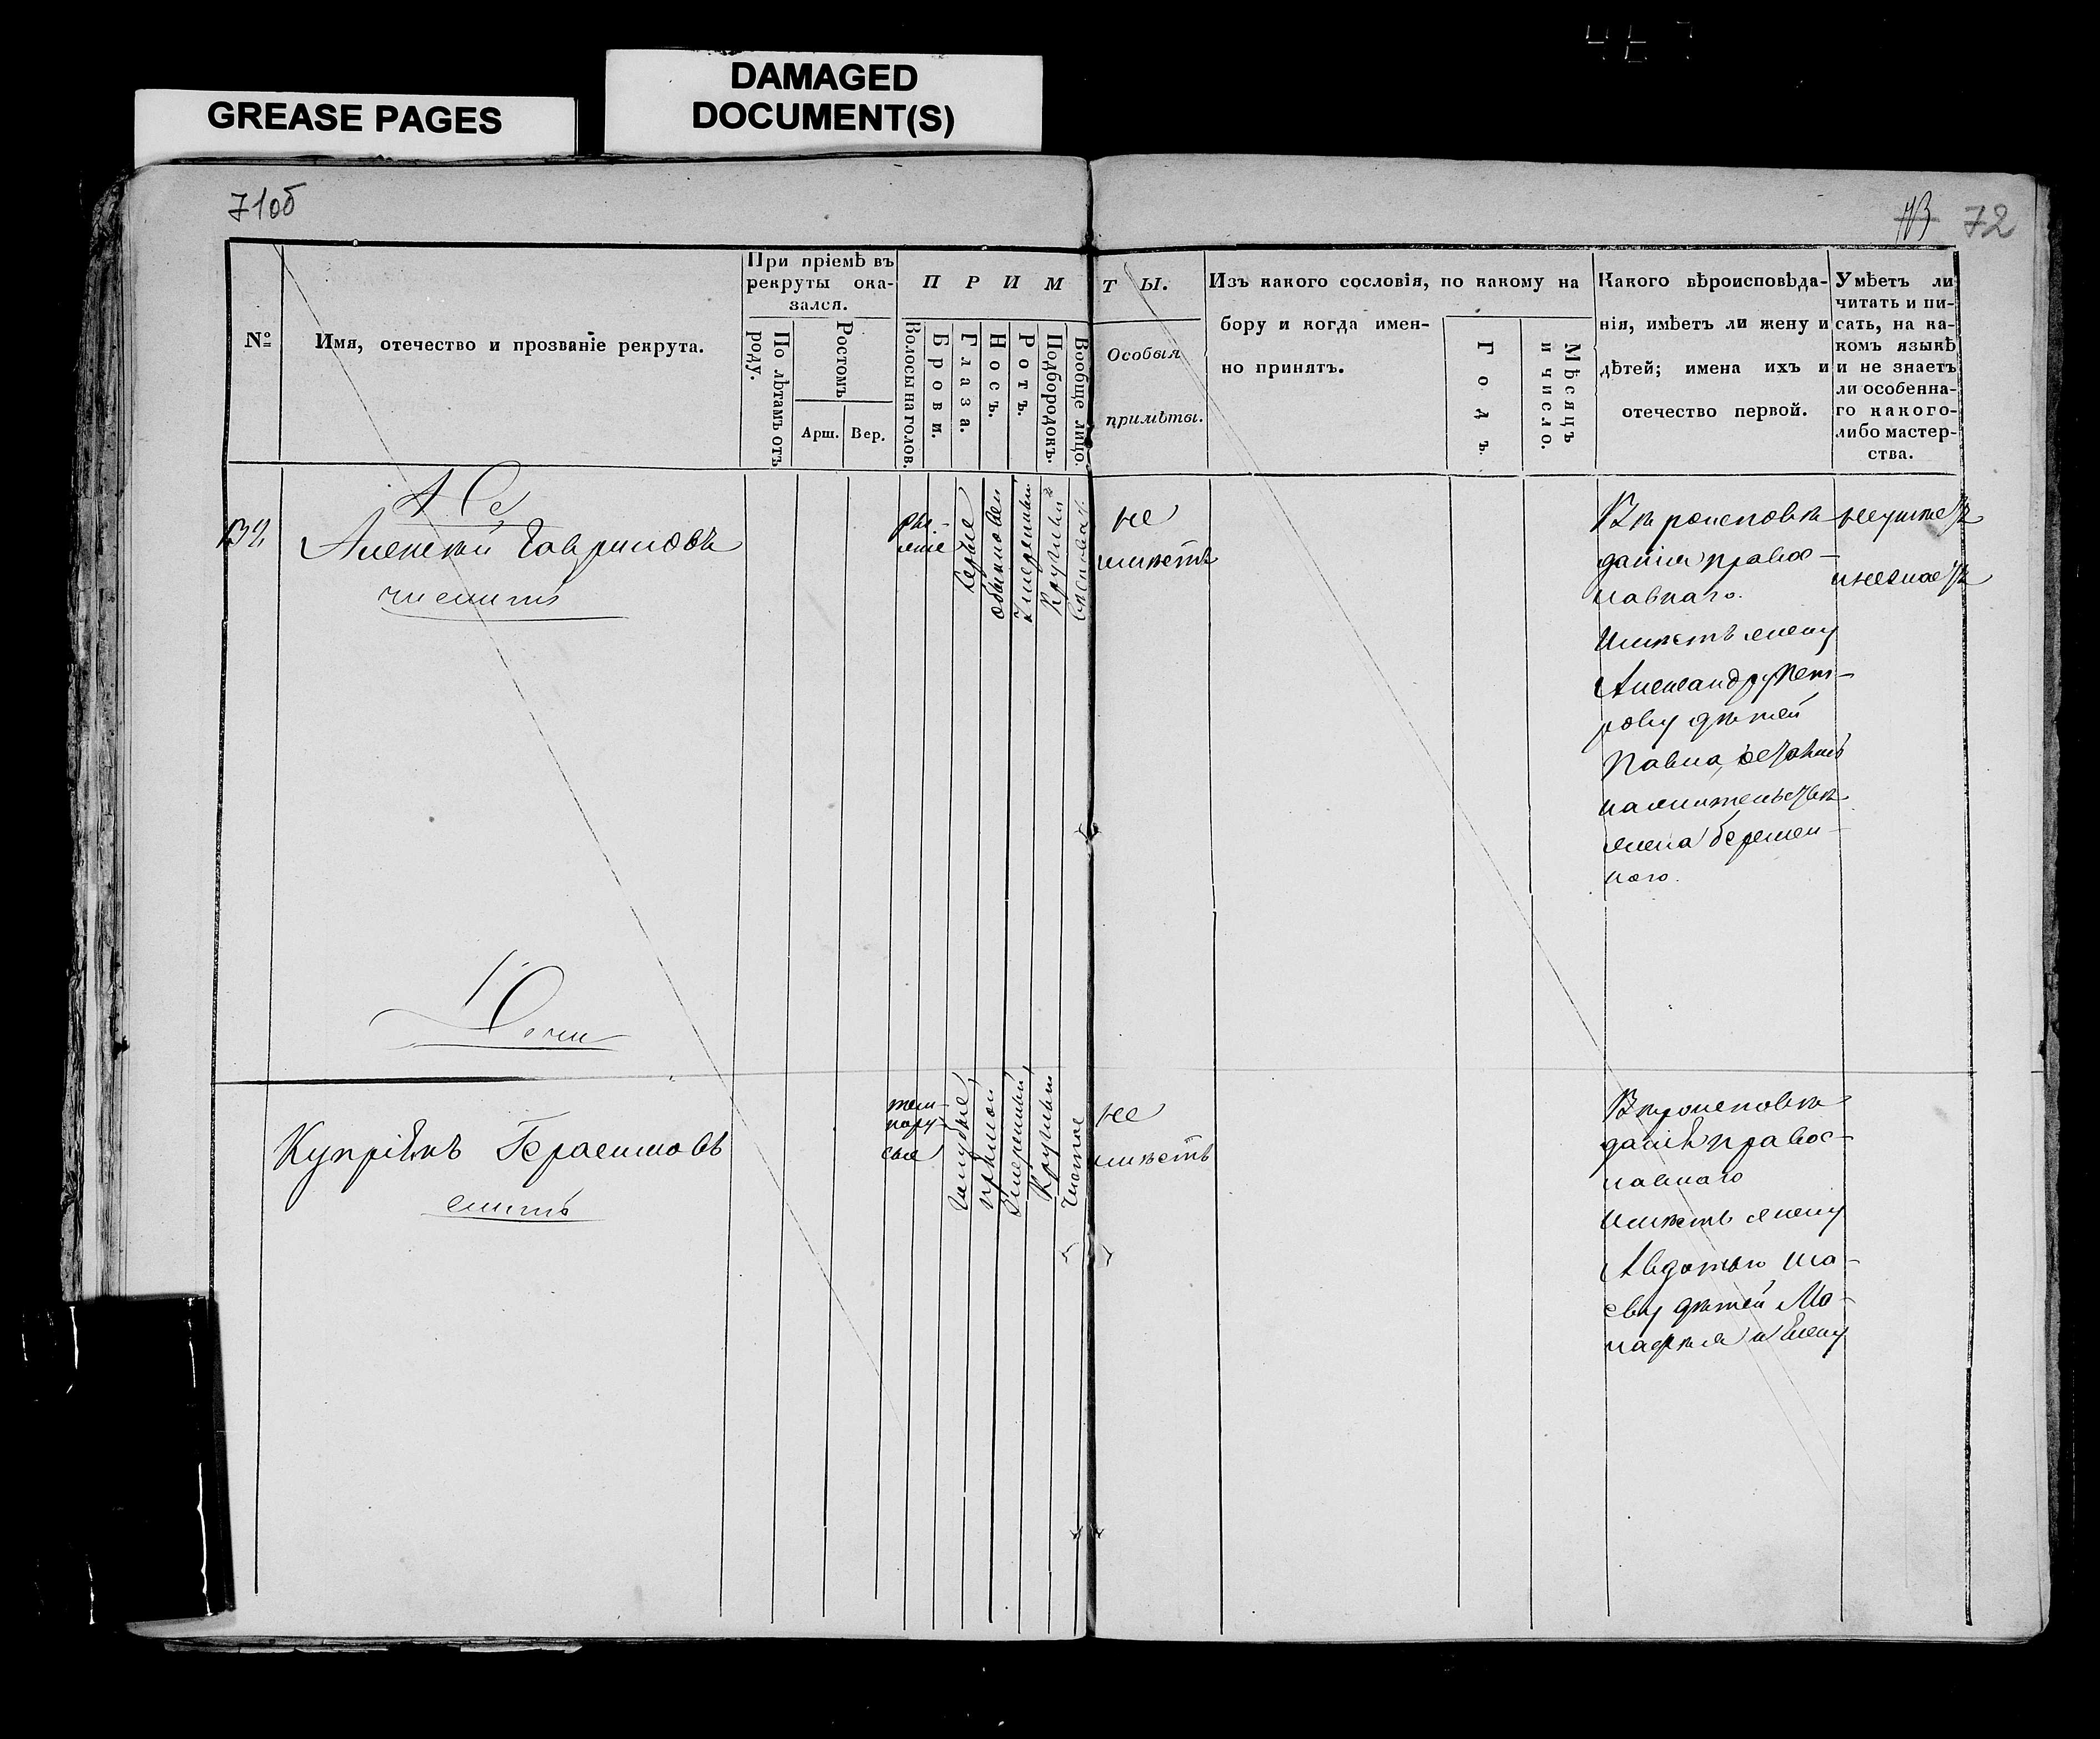 GREASE PAGES
DAMAGED
DOCUMENT(S)
71об
73 72
№
Имя, отечество и прозваніе рекрута.
При пріемѣ въ
рекруты ока-
зался.
По лѣтамъ отъ
роду.
Ростомъ
Арш. Вер.
ПРИМ
Волосы на голов.
Брови.
Глаза.
Носъ.
Ротъ.
Подбородокъ.
Вообще лицо.
ТЫ.
Особыя
примѣты.
Изъ какого сословія, по какому на
бору и когда имен-
но принятъ.
Годъ.
Мѣсяцъ
и число.
Какого вѣроисповѣда-
нія, имѣетъ ли жену и
дѣтей; имена ихъ и
отечество первой.
Умѣетъ ли
читать и пи-
сать, на ка-
комъ языкѣ
и не знаетъ
ли особенна-
го какого-
либо мастер-
ства.
Алексѣй Гавриловъ
числитъ
Серые
обыкновен
Умеренный
Круглый
не
имѣетъ
Вѣроисповѣ-
данія правос-
лавнаго.
Имѣетъ жену
Александру Пет-
рову дѣтей
Павла, оставилъ
на жительствѣ
жена беремен-
ного.
Куприянъ Герасимовъ
темно
русые
Голубые
прямой
Умеренный
Круглый
Чистое
не
имѣетъ
Вѣроисповѣ-
данія правос-
лавнаго
Имѣетъ жену
Авдотью Иса-
еву дѣтей